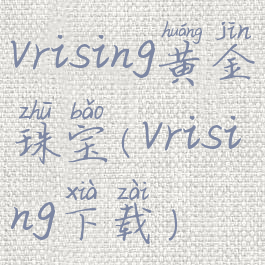 huáng jīn
vrising黄金
zhū bǎo
珠宝(vrisi
xià zài
ng下载)